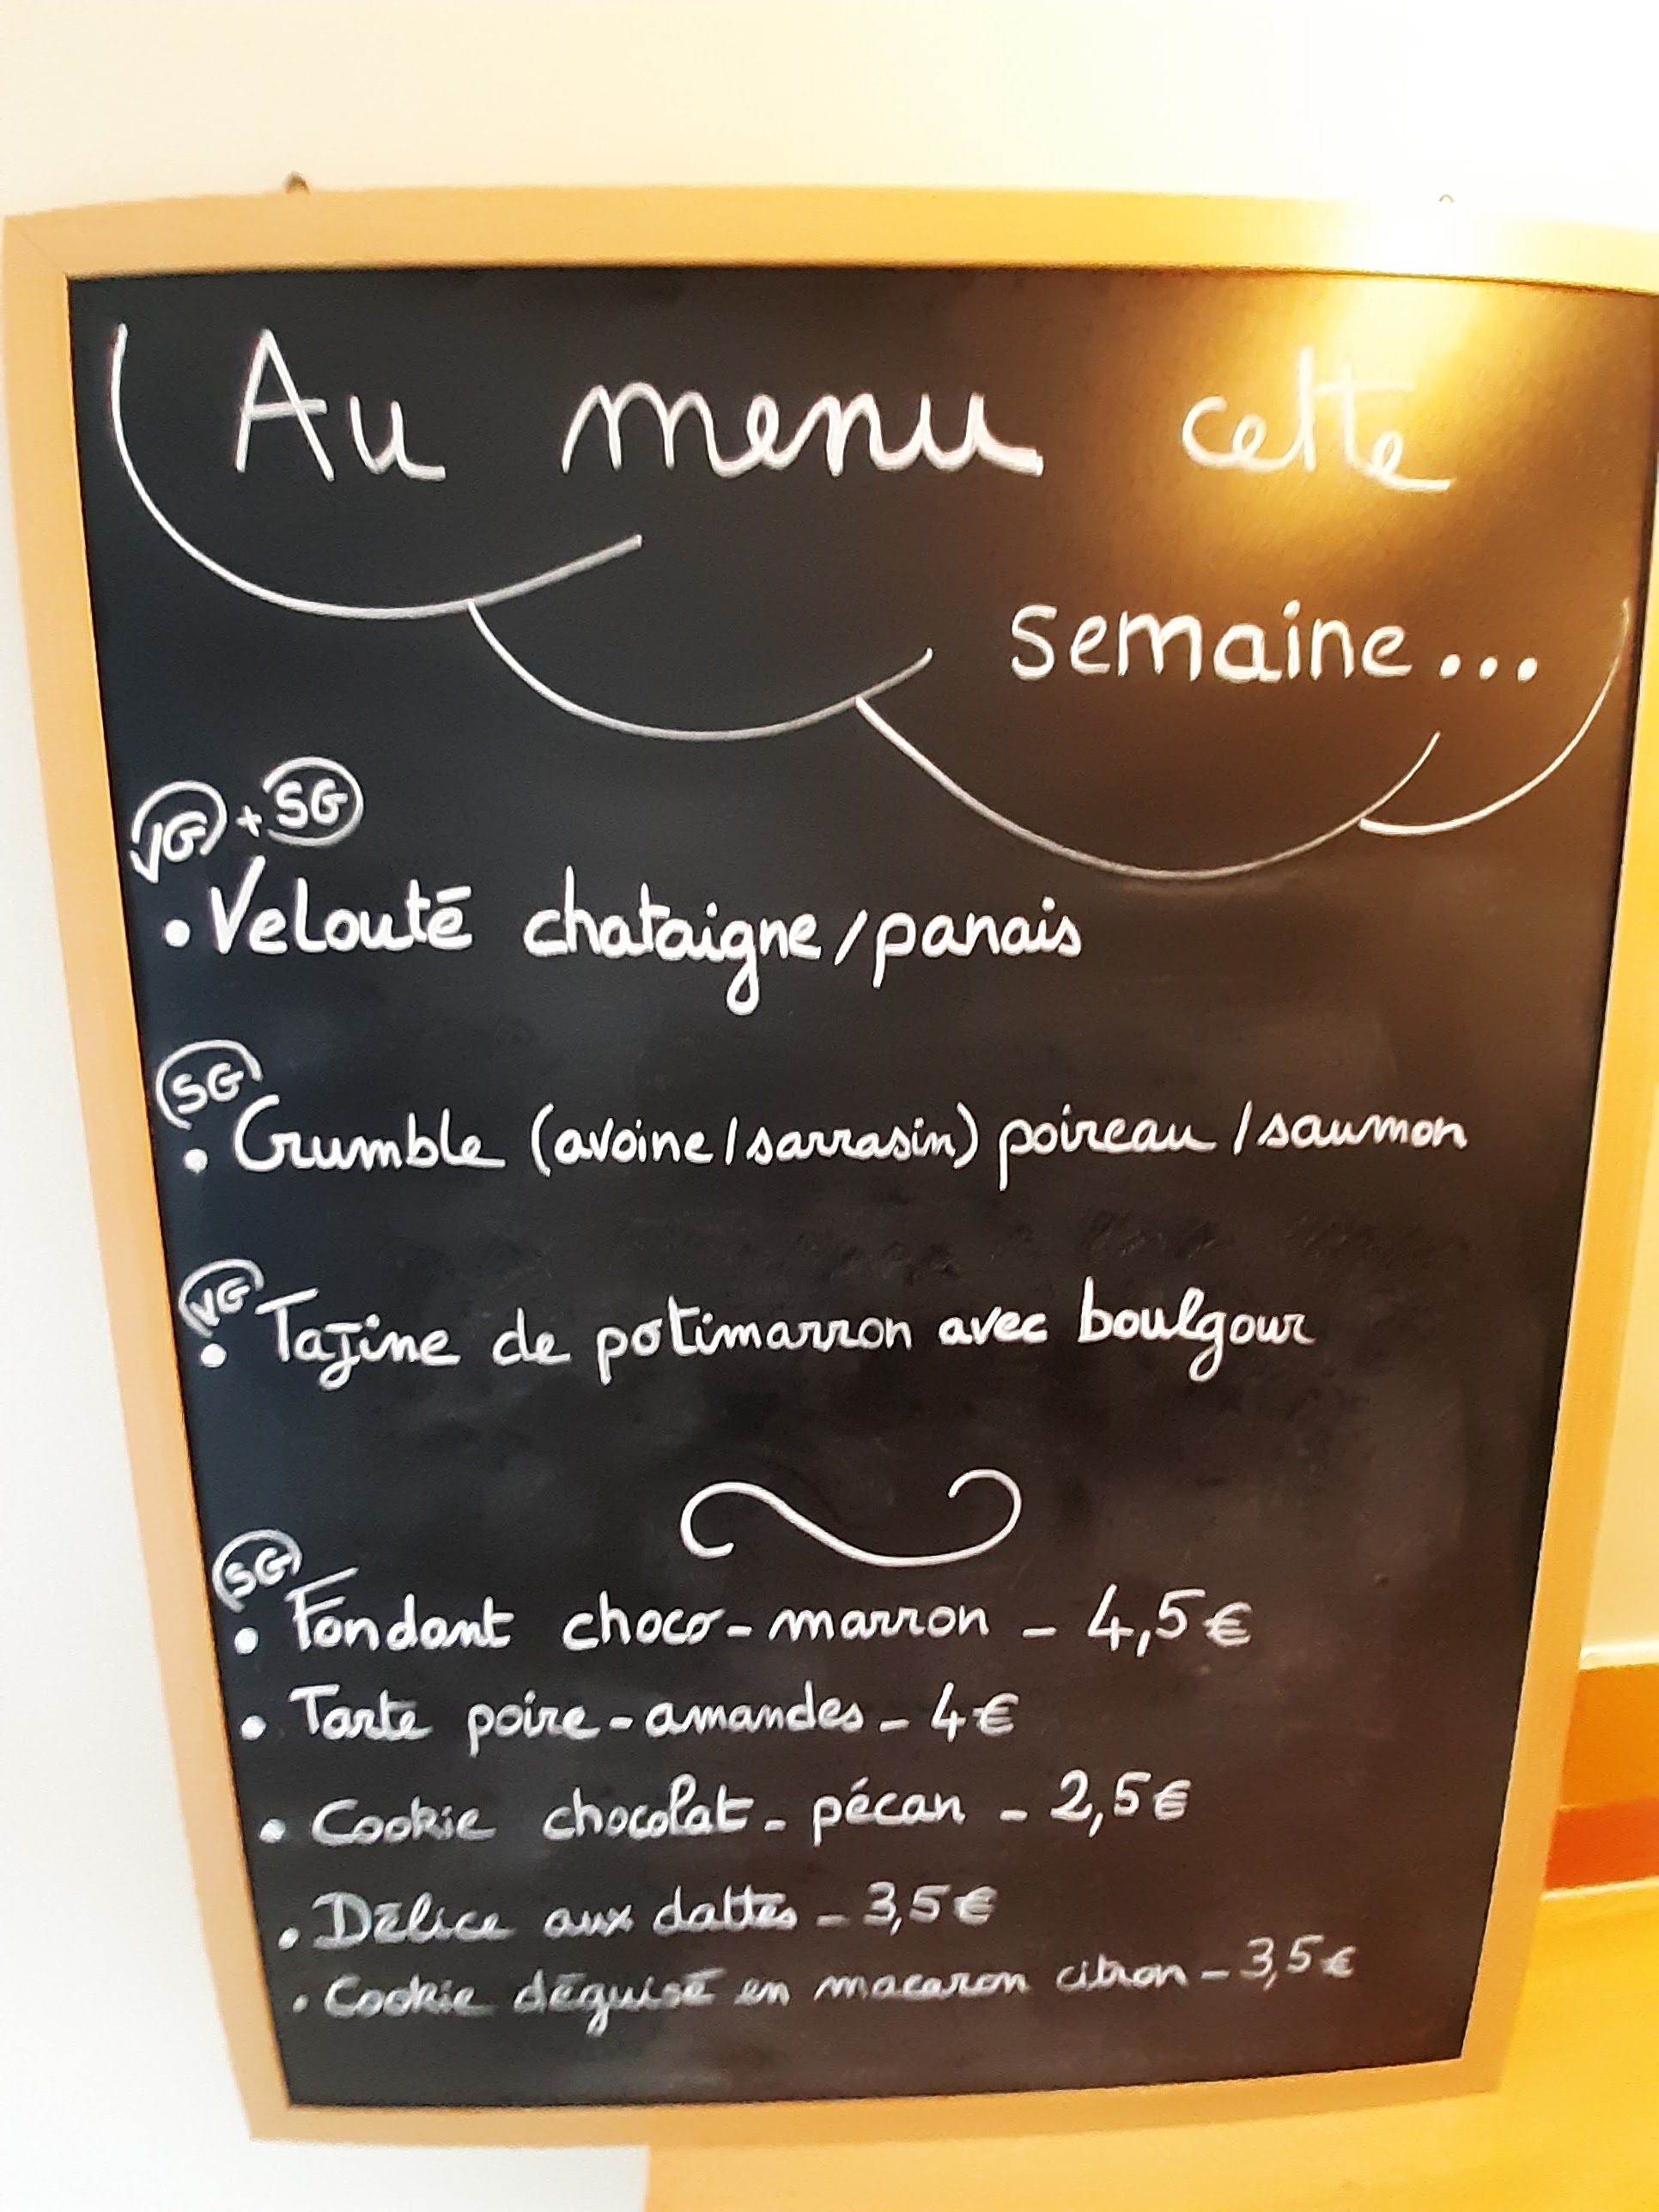 Au menu cette
semaine...
VG + SG
• Velouté chataigne/panais
SG
• Crumble (avoine/sarrasin) poireau/saumon
VG
• Tajine de potimarron avec boulgour
SG
• Fondant choco-marron - 4,5€
• Tarte poire-amandes - 4€
• Cookie chocolat-pécan - 2,5€
• Délice aux dattes - 3,5€
• Cookie déguisé en macaron citron - 3,5€